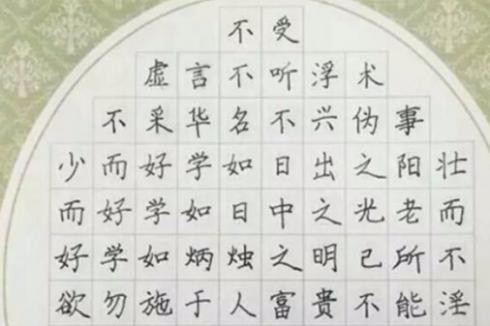 不受
虚言不听浮术
不采华名不兴伪事
少而好学如日出之阳壮
而好学如日中之光老而
好学如炳烛之明己所不
欲勿施于人富贵不能淫